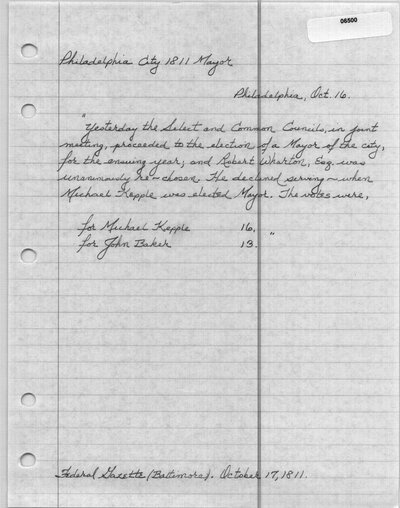 06500
Philadelphia City 1811 Mayor
Philadelphia, Oct. 16.
"Yesterday the Select and Common Councils, in joint
meeting, proceeded to the election of a Mayor of the city,
for the ensuing year, and Robert Wharton, Esq. was
unanimously re-chosen. He declined serving - when
Michael Kepple was elected Mayor. The votes were,
for Michael Kepple 16,
for John Baker 13. "
Federal Gazette (Baltimore). October 17, 1811.